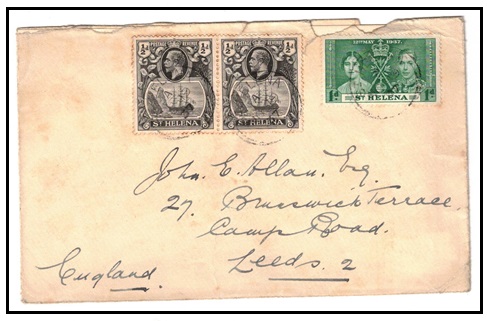 POSTAGE & REVENUE
½ᵈ ½ᵈ
ST HELENA
POSTAGE & REVENUE
½ᵈ ½ᵈ
ST HELENA
12TH MAY 1937.
1ᵈ ST HELENA 1ᵈ
John E. Allan. Esq.
27. Brunswick Terrace
Camp Road.
Leeds. 2
England.